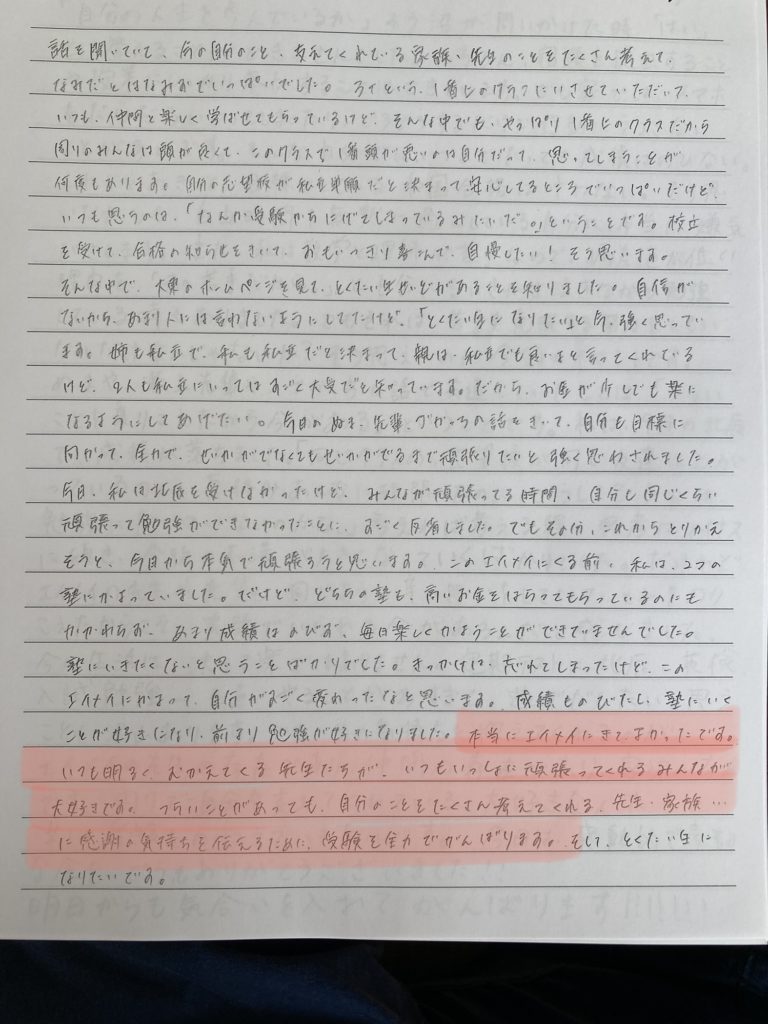 話を聞いていて、今の自分のこと、支えてくれている家族、先生のことをたくさん考えて、
なみだとはなみずでいっぱいでした。 という、1番上のクラスにいさせていただいて、
いつも、仲間と楽しく学ばせてもらっているけど、そんな中でも、やっぱり1番上のクラスだから
周りのみんなは頭が良くて、このクラスで1番頭が悪いのは自分だって、思ってしまうことが
何度もあります。自分の志望校が私立単願だと決まって、安心してるところでいっぱいだけど、
いつも思うのは、「なんか受験からにげてしまっているみたいだ。」ということです。校立
を受けて、合格の知らせをきいて、おもいっきり喜こんで、自慢したい!そう思います。
そんな中で、 のホームページを見て、とくたい生せいどがあることを知りました。自信が
ないから、あまり人には言わないようにしてたけど、「とくたい生になりたい」と今、強く思ってい
ます。姉も私立で、私も私立だと決まって、親は、私立でも良いよと言ってくれている
けど、2人も私立にいってはすごく大変だと知っています。だから、お金が少しでも楽に
なるようにしてあげたい。今日の 先輩、 の話をきいて、自分も目標に
向かって、全力で、せいかがでなくてもせいかがでるまで頑張りたいと強く思わされました。
今日、私は北辰を受けなかったけど、みんなが頑張ってる時間、自分も同じくらい
頑張って勉強ができなかったことに、すごく反省しました。でもその分、これからとりかえ
そうと、今日から本気で頑張ろうと思います。このエイメイにくる前、私は、2つの
塾にかよっていました。だけど、どちらの塾も、高いお金をはらってもらっているのにも
かかわらず、あまり成績はのびず、毎日楽しくかようことができていませんでした。
塾にいきたくないと思うことばかりでした。きっかけは、忘れてしまったけど、この
エイメイにかよって、自分がすごく変わったなと思います。成績ものびたし、塾にいく
ことが好きになり、前より勉強が好きになりました。本当にエイメイにきてよかったです。
いつも明るく、むかえてくる先生たちが、いつもいっしょに頑張ってくれるみんなが
大好きです。つらいことがあっても、自分のことをたくさん考えてくれる、先生・家族…
に感謝の気持ちを伝えるために、受験を全力でがんばります。そして、とくたい生に
なりたいです。